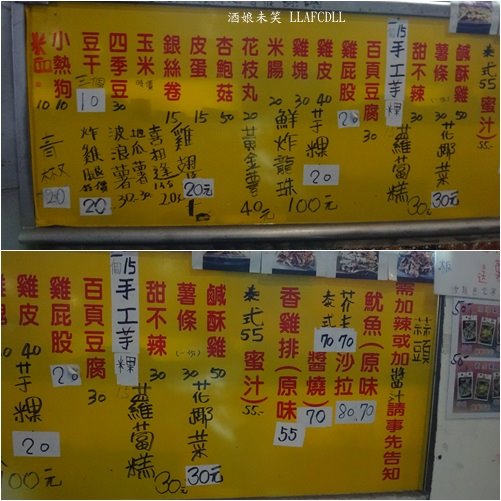 酒娘未笑 LLAFCDLL
泰式55 蜜汁)
鹹酥雞 50
薯條(一份) 30
甜不辣 30
15 手工芋粿
百頁豆腐 30
雞屁股 20
雞皮 40
雞塊 30
米腸 20
花枝丸 20
杏鮑菇 50
皮蛋 15
銀絲卷 15
玉米 時價
四季豆 30
豆干 三個10
小熱狗 10
米血 10
花椰菜 30元
蘿蔔糕 30元
芋粿 20
鮮炸龍珠 100元
黃金薯 40元
雞翅 20元
喜相逢
地瓜薯 30
波浪薯
炸雞腿 20
20
需加辣或加醬汁請事先告知
蒜 豆
魷魚(原味 芥末沙拉 80.70
泰式 70 70 醬燒) 70
香雞排(原味 55
泰式55 蜜汁) 55.-
鹹酥雞 50
薯條(一份) 30
甜不辣 30
一個15 手工芋粿
百頁豆腐 30
雞屁股 20
雞皮 40
雞塊
花椰菜 30元
蘿蔔糕 30元
芋粿 20
100元
送
50.-